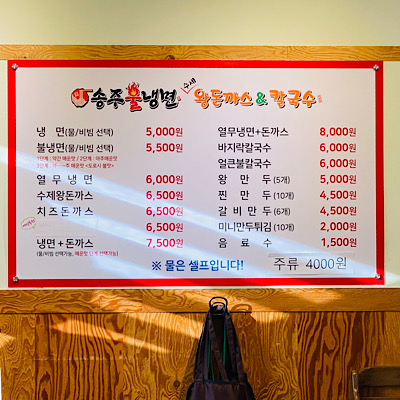 송주불냉면 수제 왕돈까스 & 칼국수
냉 면(물/비빔 선택) 5,000원
불냉면(물/비빔 선택) 5,500원
1단계 : 약간 매운맛 / 2단계 : 아주매운맛
열 무 냉 면 6,000원
수제왕돈까스 6,500원
치즈돈까스 6,500원
6,500원
냉면+돈까스 7,500원
(물/비빔 선택가능, 매운맛 단계 선택가능)
열무냉면+돈까스 8,000원
바지락칼국수 6,000원
얼큰불칼국수 6,000원
왕 만 두 (5개) 5,000원
찐 만 두 (10개) 4,500원
갈 비 만 두 (6개) 4,500원
미니만두튀김 (10개) 2,000원
음 료 수 1,500원
※ 물은 셀프입니다!
주류 4000원